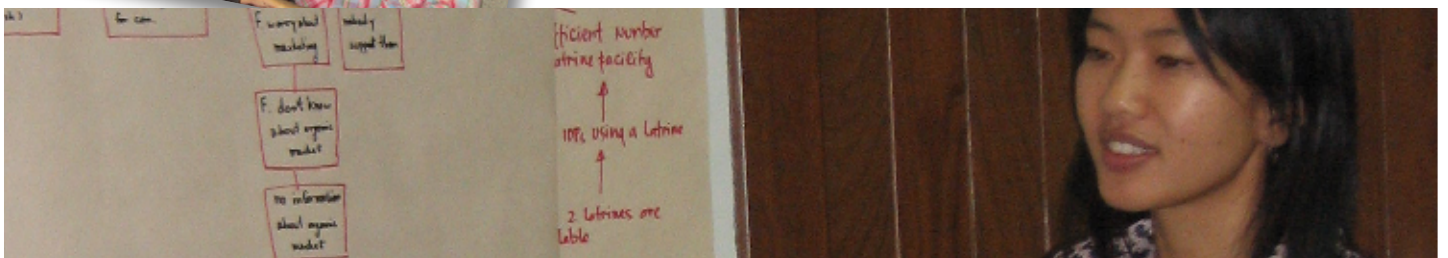 for com.
F worry about
marketing
nobody
support them
F. don't know
about organic
market
no information
about organic
market
fficient Number
atrine facility
IDPs using a Latrine
2 Latrines are
lable